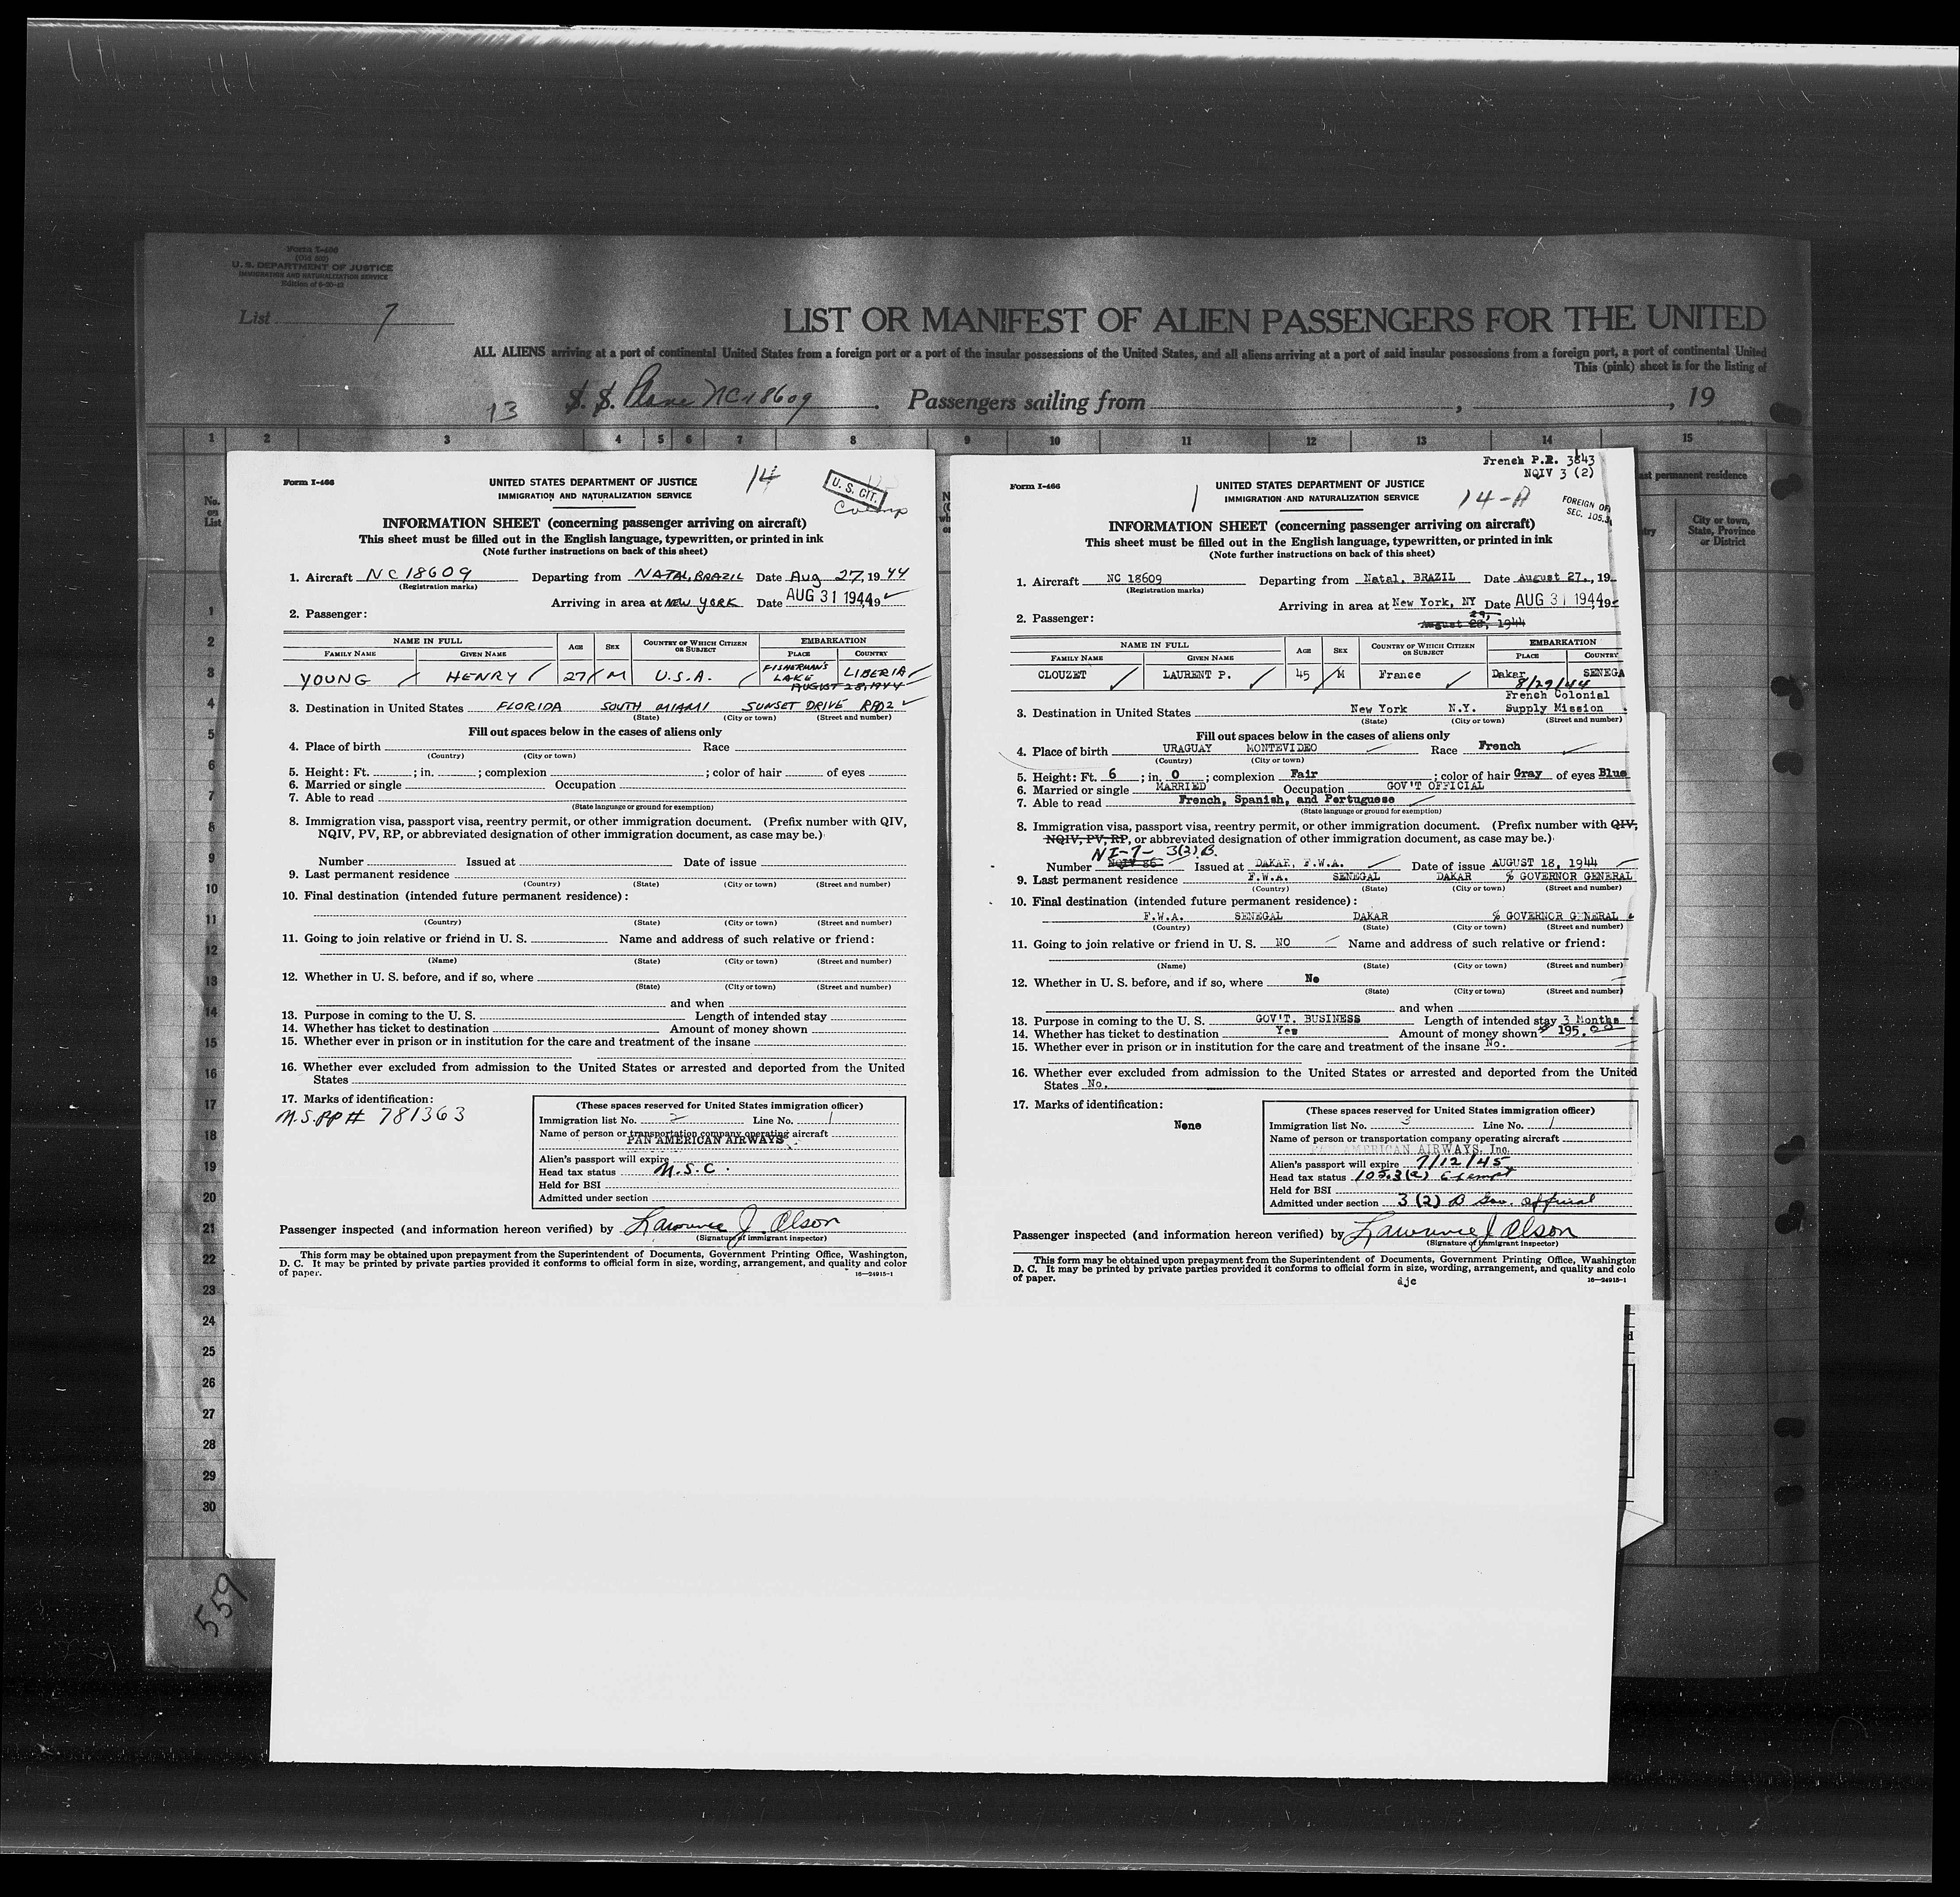 Form I-466
(Old 500)
U. S. DEPARTMENT OF JUSTICE
IMMIGRATION AND NATURALIZATION SERVICE
List 7
LIST OR MANIFEST OF ALIEN PASSENGERS FOR THE UNITED
ALL ALIENS arriving at a port of continental United States from a foreign port or a port of the insular possessions of the United States, and all aliens arriving at a port of said insular possessions from a foreign port, a port of continental United
This (pink) sheet is for the listing of
13 S. S. Plane NC 18609. Passengers sailing from , , 19
1 2 3 4 5 6 7 8 9 10 11 12 13 14 15
No. on List
ast permanent residence
City or town, State, Province or District
1
2
3
4
5
6
7
8
9
10
11
12
13
14
15
16
17
18
19
20
21
22
23
24
25
26
27
28
29
30
559
Form I-466
UNITED STATES DEPARTMENT OF JUSTICE
14
U. S. CIT.
IMMIGRATION AND NATURALIZATION SERVICE
INFORMATION SHEET (concerning passenger arriving on aircraft)
This sheet must be filled out in the English language, typewritten, or printed in ink
(Note further instructions on back of this sheet)
1. Aircraft NC 18609 Departing from NATAL, BRAZIL Date Aug 27, 1944
(Registration marks)
Arriving in area at NEW YORK Date AUG 31 1944, 19
2. Passenger:
NAME IN FULL AGE SEX COUNTRY OF WHICH CITIZEN OR SUBJECT EMBARKATION
FAMILY NAME GIVEN NAME PLACE COUNTRY
YOUNG HENRY 27 M U.S.A. FISHERMAN'S LAKE LIBERIA
AUGUST 28, 1944
3. Destination in United States FLORIDA SOUTH MIAMI SUNSET DRIVE RFD2
(State) (City or town) (Street and number)
Fill out spaces below in the cases of aliens only
4. Place of birth Race
(Country) (City or town)
5. Height: Ft. ; in. ; complexion ; color of hair of eyes
6. Married or single Occupation
7. Able to read
(State language or ground for exemption)
8. Immigration visa, passport visa, reentry permit, or other immigration document. (Prefix number with QIV,
NQIV, PV, RP, or abbreviated designation of other immigration document, as case may be.)
Number Issued at Date of issue
9. Last permanent residence
(Country) (State) (City or town) (Street and number)
10. Final destination (intended future permanent residence):
(Country) (State) (City or town) (Street and number)
11. Going to join relative or friend in U. S. Name and address of such relative or friend:
(Name) (State) (City or town) (Street and number)
12. Whether in U. S. before, and if so, where
(State) (City or town) (Street and number)
and when
13. Purpose in coming to the U. S. Length of intended stay
14. Whether has ticket to destination Amount of money shown
15. Whether ever in prison or in institution for the care and treatment of the insane
16. Whether ever excluded from admission to the United States or arrested and deported from the United
States
17. Marks of identification:
M.S.PP# 781363
(These spaces reserved for United States immigration officer)
Immigration list No. 2 Line No. 1
Name of person or transportation company operating aircraft
PAN AMERICAN AIRWAYS
Alien's passport will expire
Head tax status N.S.C.
Held for BSI
Admitted under section
Passenger inspected (and information hereon verified) by Lawrence J. Olson
(Signature of immigrant inspector)
This form may be obtained upon prepayment from the Superintendent of Documents, Government Printing Office, Washington,
D. C. It may be printed by private parties provided it conforms to official form in size, wording, arrangement, and quality and color
of paper. 16—24915-1
French P.R. 3843
NQIV 3 (2)
Form I-466
1
UNITED STATES DEPARTMENT OF JUSTICE
14-A
FOREIGN OF
SEC. 105.3
IMMIGRATION AND NATURALIZATION SERVICE
INFORMATION SHEET (concerning passenger arriving on aircraft)
This sheet must be filled out in the English language, typewritten, or printed in ink
(Note further instructions on back of this sheet)
1. Aircraft NC 18609 Departing from Natal, BRAZIL Date August 27., 19
(Registration marks)
Arriving in area at New York, NY Date AUG 31 1944, 19
29,
August 28, 1944
2. Passenger:
NAME IN FULL AGE SEX COUNTRY OF WHICH CITIZEN OR SUBJECT EMBARKATION
FAMILY NAME GIVEN NAME PLACE COUNTRY
CLOUZET LAURENT P. 45 M France Dakar SENEGA
8/29/44
French Colonial
3. Destination in United States New York N.Y. Supply Mission
(State) (City or town) (Street and number)
Fill out spaces below in the cases of aliens only
4. Place of birth URAGUAY MONTEVIDEO Race French
(Country) (City or town)
5. Height: Ft. 6 ; in. 0 ; complexion Fair ; color of hair Gray of eyes Blue
6. Married or single MARRIED Occupation GOV'T OFFICIAL
7. Able to read French, Spanish, and Portuguese
(State language or ground for exemption)
8. Immigration visa, passport visa, reentry permit, or other immigration document. (Prefix number with QIV,
NQIV, PV, RP, or abbreviated designation of other immigration document, as case may be.)
NI-7- 3(2)B.
Number NQIV 86 Issued at DAKAR, F.W.A. Date of issue AUGUST 18, 1944
9. Last permanent residence F.W.A. SENEGAL DAKAR % GOVERNOR GENERAL
(Country) (State) (City or town) (Street and number)
10. Final destination (intended future permanent residence):
F.W.A. SENEGAL DAKAR % GOVERNOR GENERAL
(Country) (State) (City or town) (Street and number)
11. Going to join relative or friend in U. S. NO Name and address of such relative or friend:
(Name) (State) (City or town) (Street and number)
12. Whether in U. S. before, and if so, where No
(State) (City or town) (Street and number)
and when
13. Purpose in coming to the U. S. GOV'T. BUSINESS Length of intended stay 3 Months
14. Whether has ticket to destination Yes Amount of money shown $ 195.00
15. Whether ever in prison or in institution for the care and treatment of the insane No.
16. Whether ever excluded from admission to the United States or arrested and deported from the United
States No.
17. Marks of identification:
None
(These spaces reserved for United States immigration officer)
Immigration list No. 3 Line No. 1
Name of person or transportation company operating aircraft
PAN AMERICAN AIRWAYS, Inc.
Alien's passport will expire 7/12/45
Head tax status 105.3(2) Exempt
Held for BSI
Admitted under section 3 (2) B Gov. official
Passenger inspected (and information hereon verified) by Lawrence J Olson
(Signature of immigrant inspector)
This form may be obtained upon prepayment from the Superintendent of Documents, Government Printing Office, Washington
D. C. It may be printed by private parties provided it conforms to official form in size, wording, arrangement, and quality and colo
of paper. djc 16—24915-1